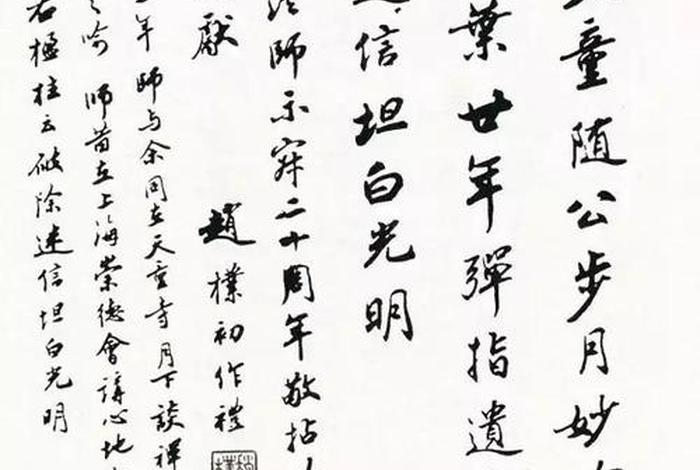 童随公步月妙
葉廿年彈指遺
信坦白光明
師示寂二十周年敬拈
獻
趙樸初作禮
年師与余同在天童寺月下談禪
喻師昔在上海崇德會講心地
石極柱云破除迷信坦白光明